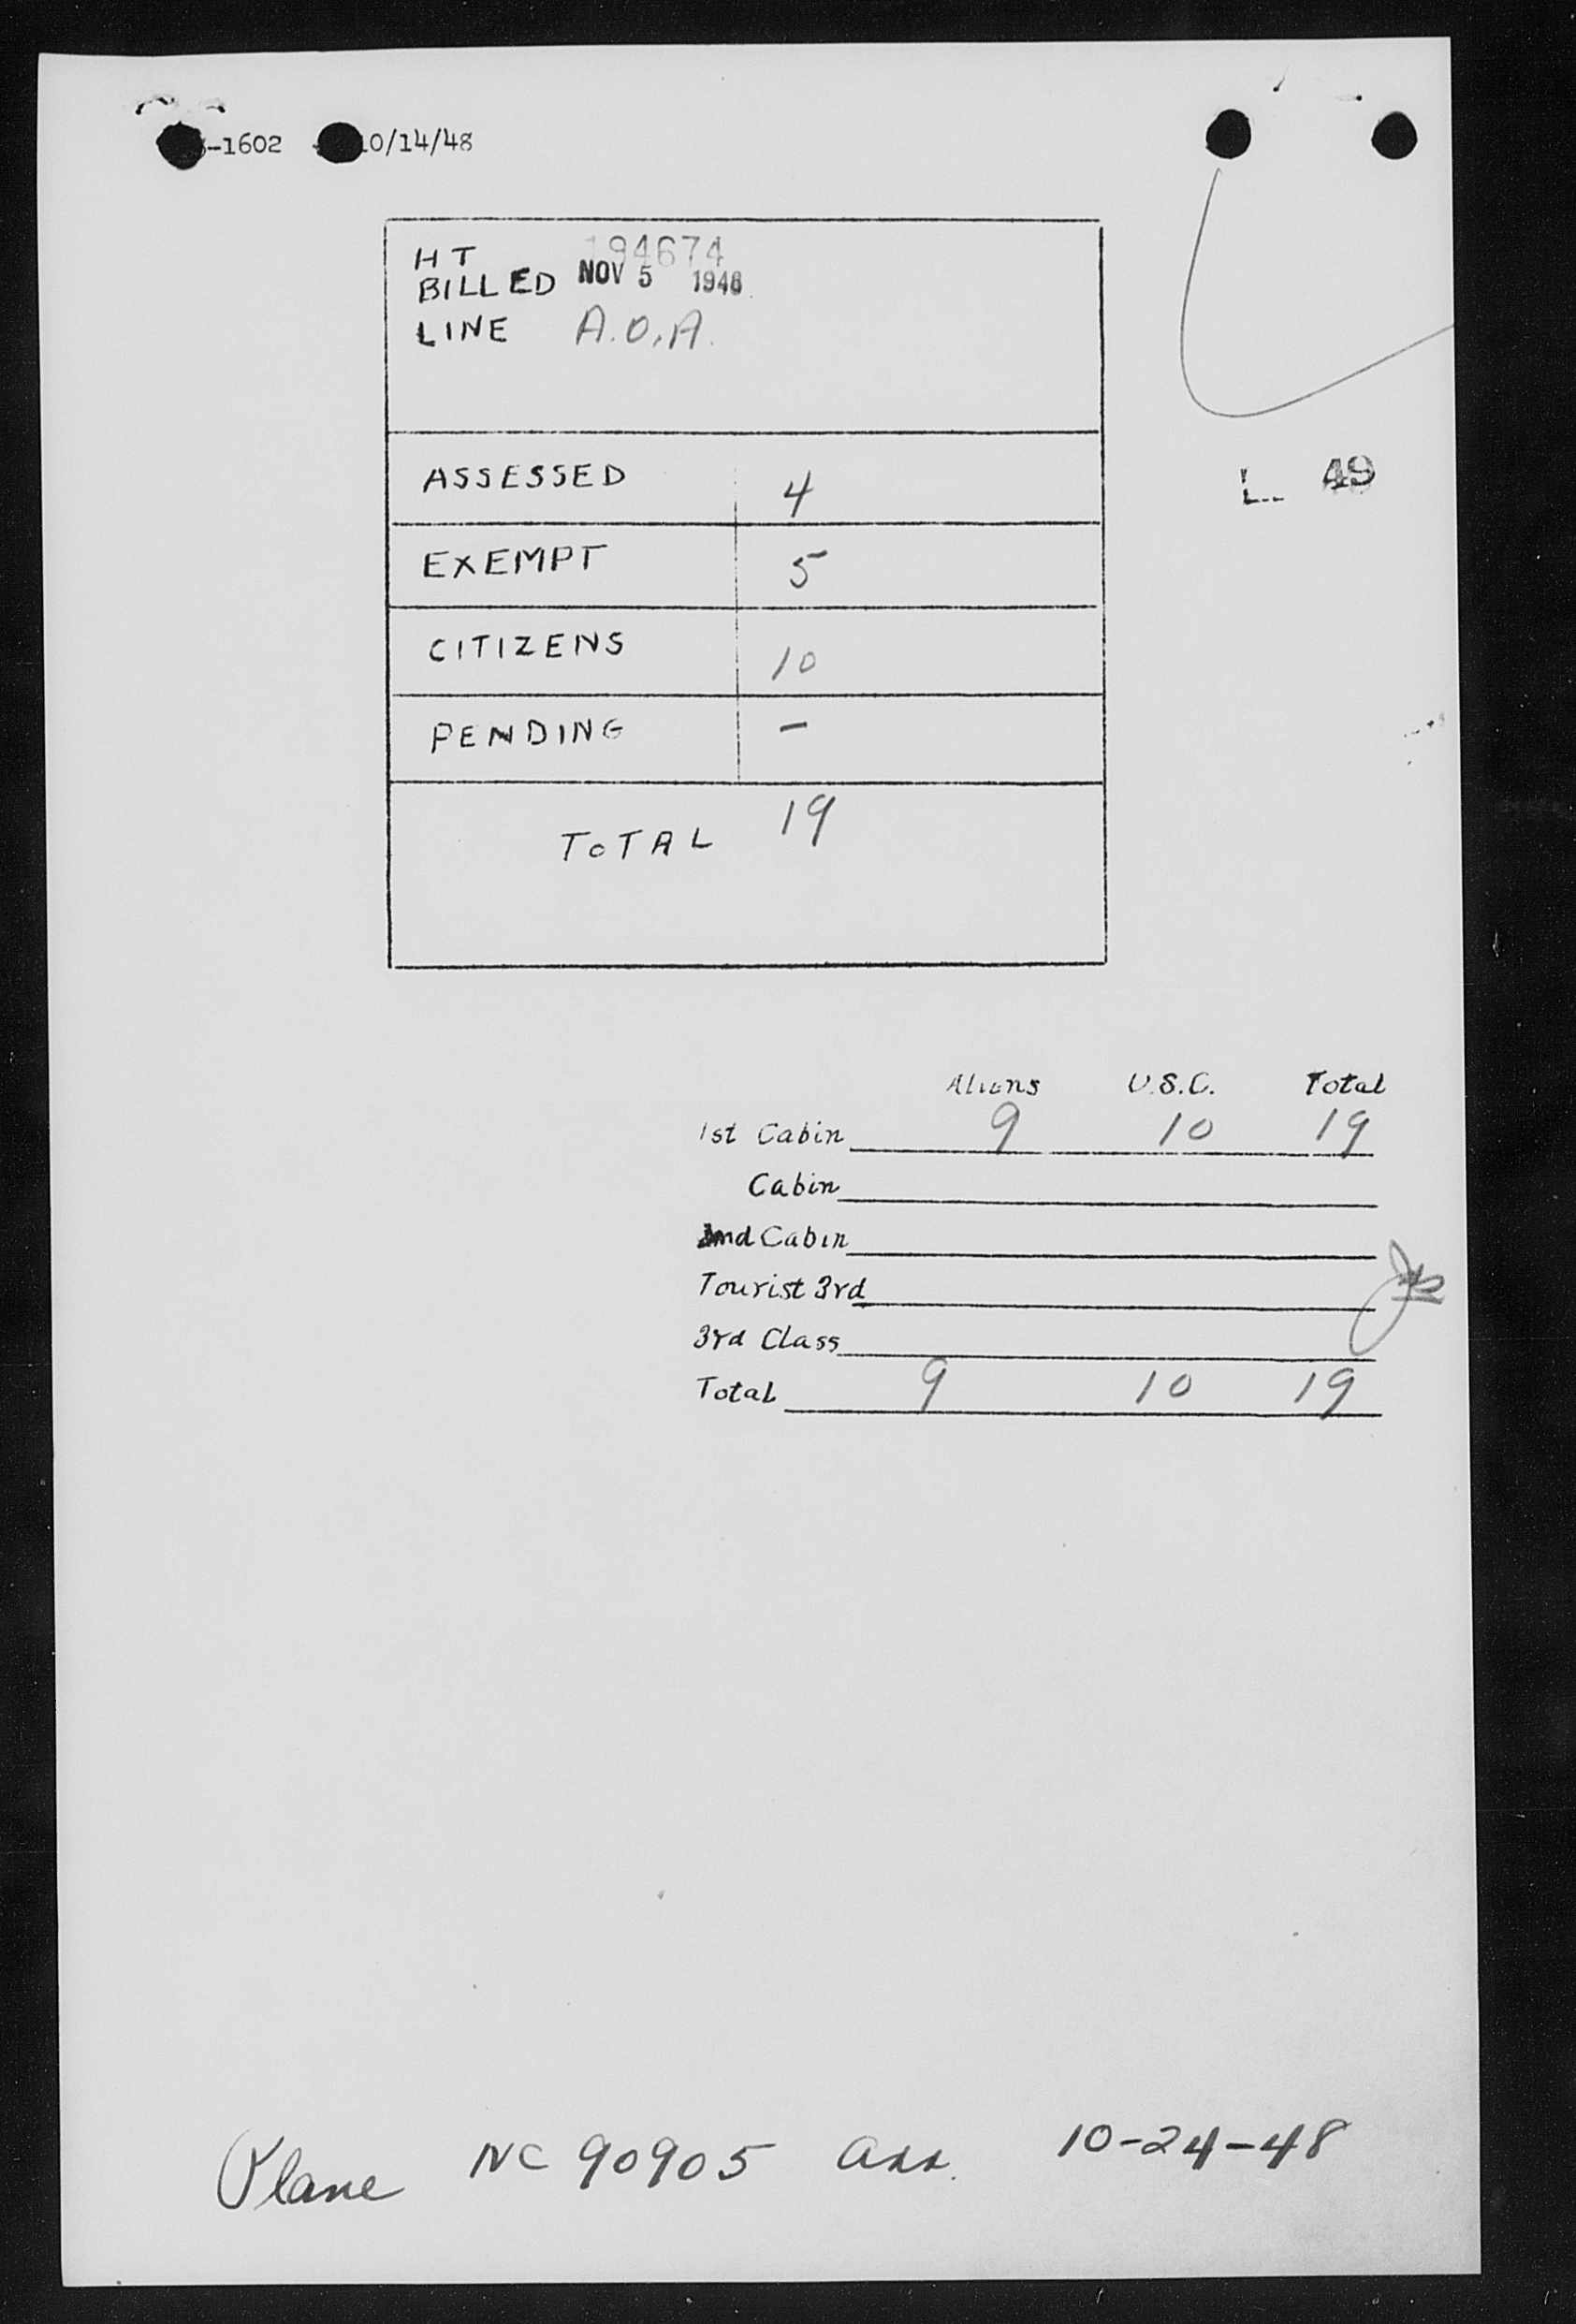 -1602 10/14/48
HT 194674
BILLED NOV 5 1948
LINE A.O.A.
ASSESSED 4
L 49
EXEMPT 5
CITIZENS 10
PENDING –
TOTAL 19
Aliens U.S.C. Total
1st Cabin 9 10 19
Cabin
2nd Cabin
Tourist 3rd
3rd Class
Total 9 10 19
Plane NC 90905 arr. 10-24-48